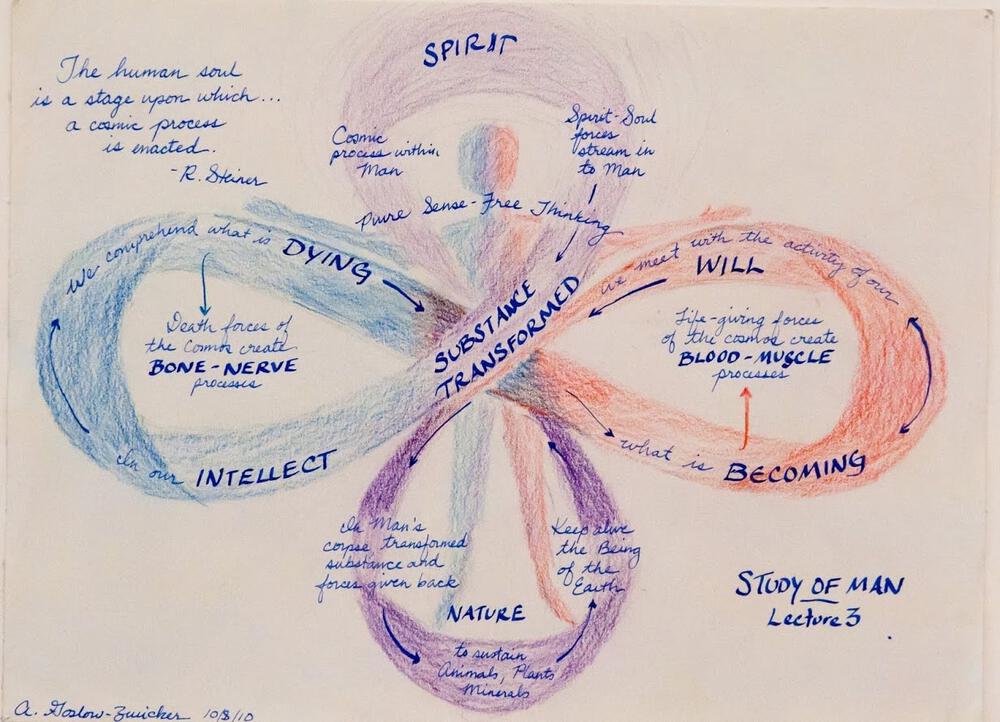 The human soul
is a stage upon which...
a cosmic process
is enacted.
-R. Steiner
SPIRIT
Cosmic
process within
Man
Spirit-Soul
forces
stream in
to Man
Pure Sense-Free Thinking
We comprehend what is DYING
Death forces of
the Cosmos create
BONE-NERVE
processes
In our INTELLECT
SUBSTANCE
TRANSFORMED
we meet with the activity of our
WILL
Life-giving forces
of the cosmos create
BLOOD-MUSCLE
processes
what is BECOMING
In Man's
corpse transformed
substance and
forces given back
Keep alive
the Being
of the
Earth
NATURE
to sustain
Animals, Plants
Minerals
STUDY OF MAN
Lecture 3
A. Goslow-Zwicker 10/8/10